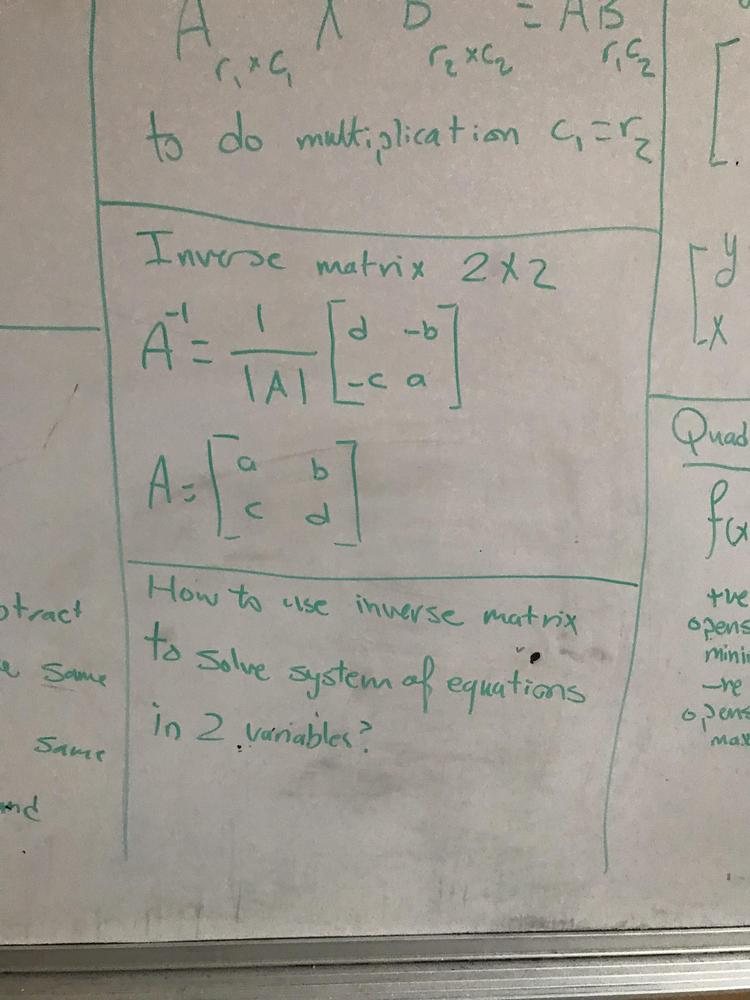 A X B = AB
r₁×c₁ r₂×c₂ r₁c₂
to do multiplication c₁=r₂
Inverse matrix 2×2
A⁻¹ = 1/|A| [d -b
-c a]
A = [a b
c d]
How to use inverse matrix
to solve system of equations
in 2 variables?
same
same
[y
x
Quad
f(x
+ve
opens
-ve
opens